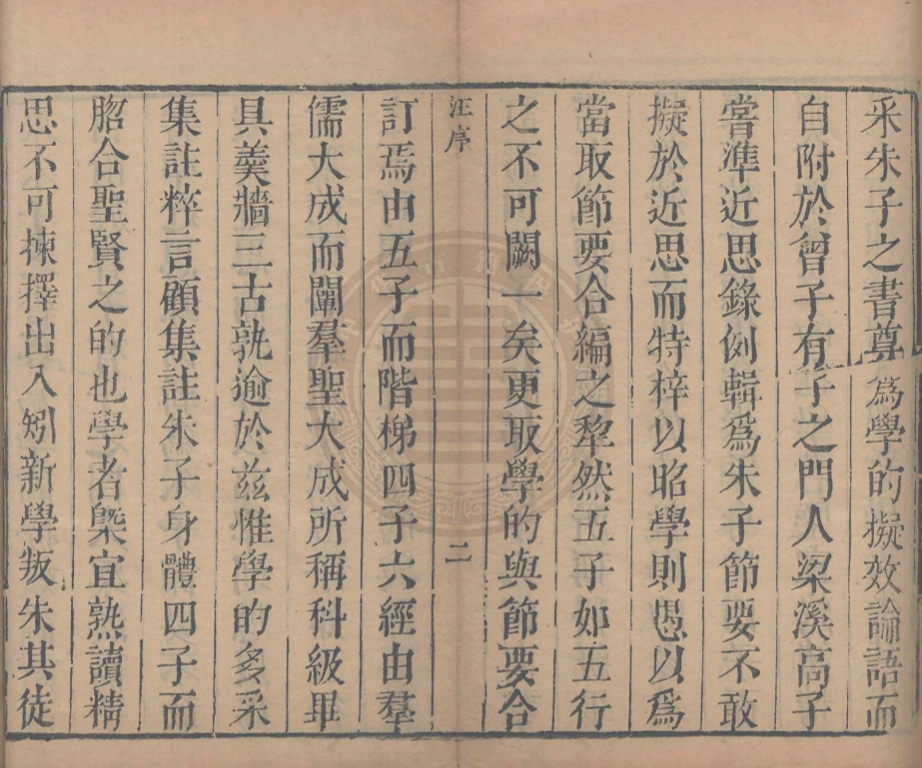 采朱子之書尊爲學的擬效論語而
自附於曾子有子之門人梁溪高子
嘗準近思錄例輯爲朱子節要不敢
擬於近思而特梓以昭學則愚以爲
當取節要合編之犂然五子如五行
之不可闕一矣更取學的與節要合
汪序 二
訂焉由五子而階梯四子六經由羣
儒大成而闡羣聖大成所稱科級畢
具羹牆三古孰逾於兹惟學的多采
集註粹言顧集註朱子身體四子而
脗合聖賢之的也學者槩宜熟讀精
思不可揀擇出入矧新學叛朱其徒